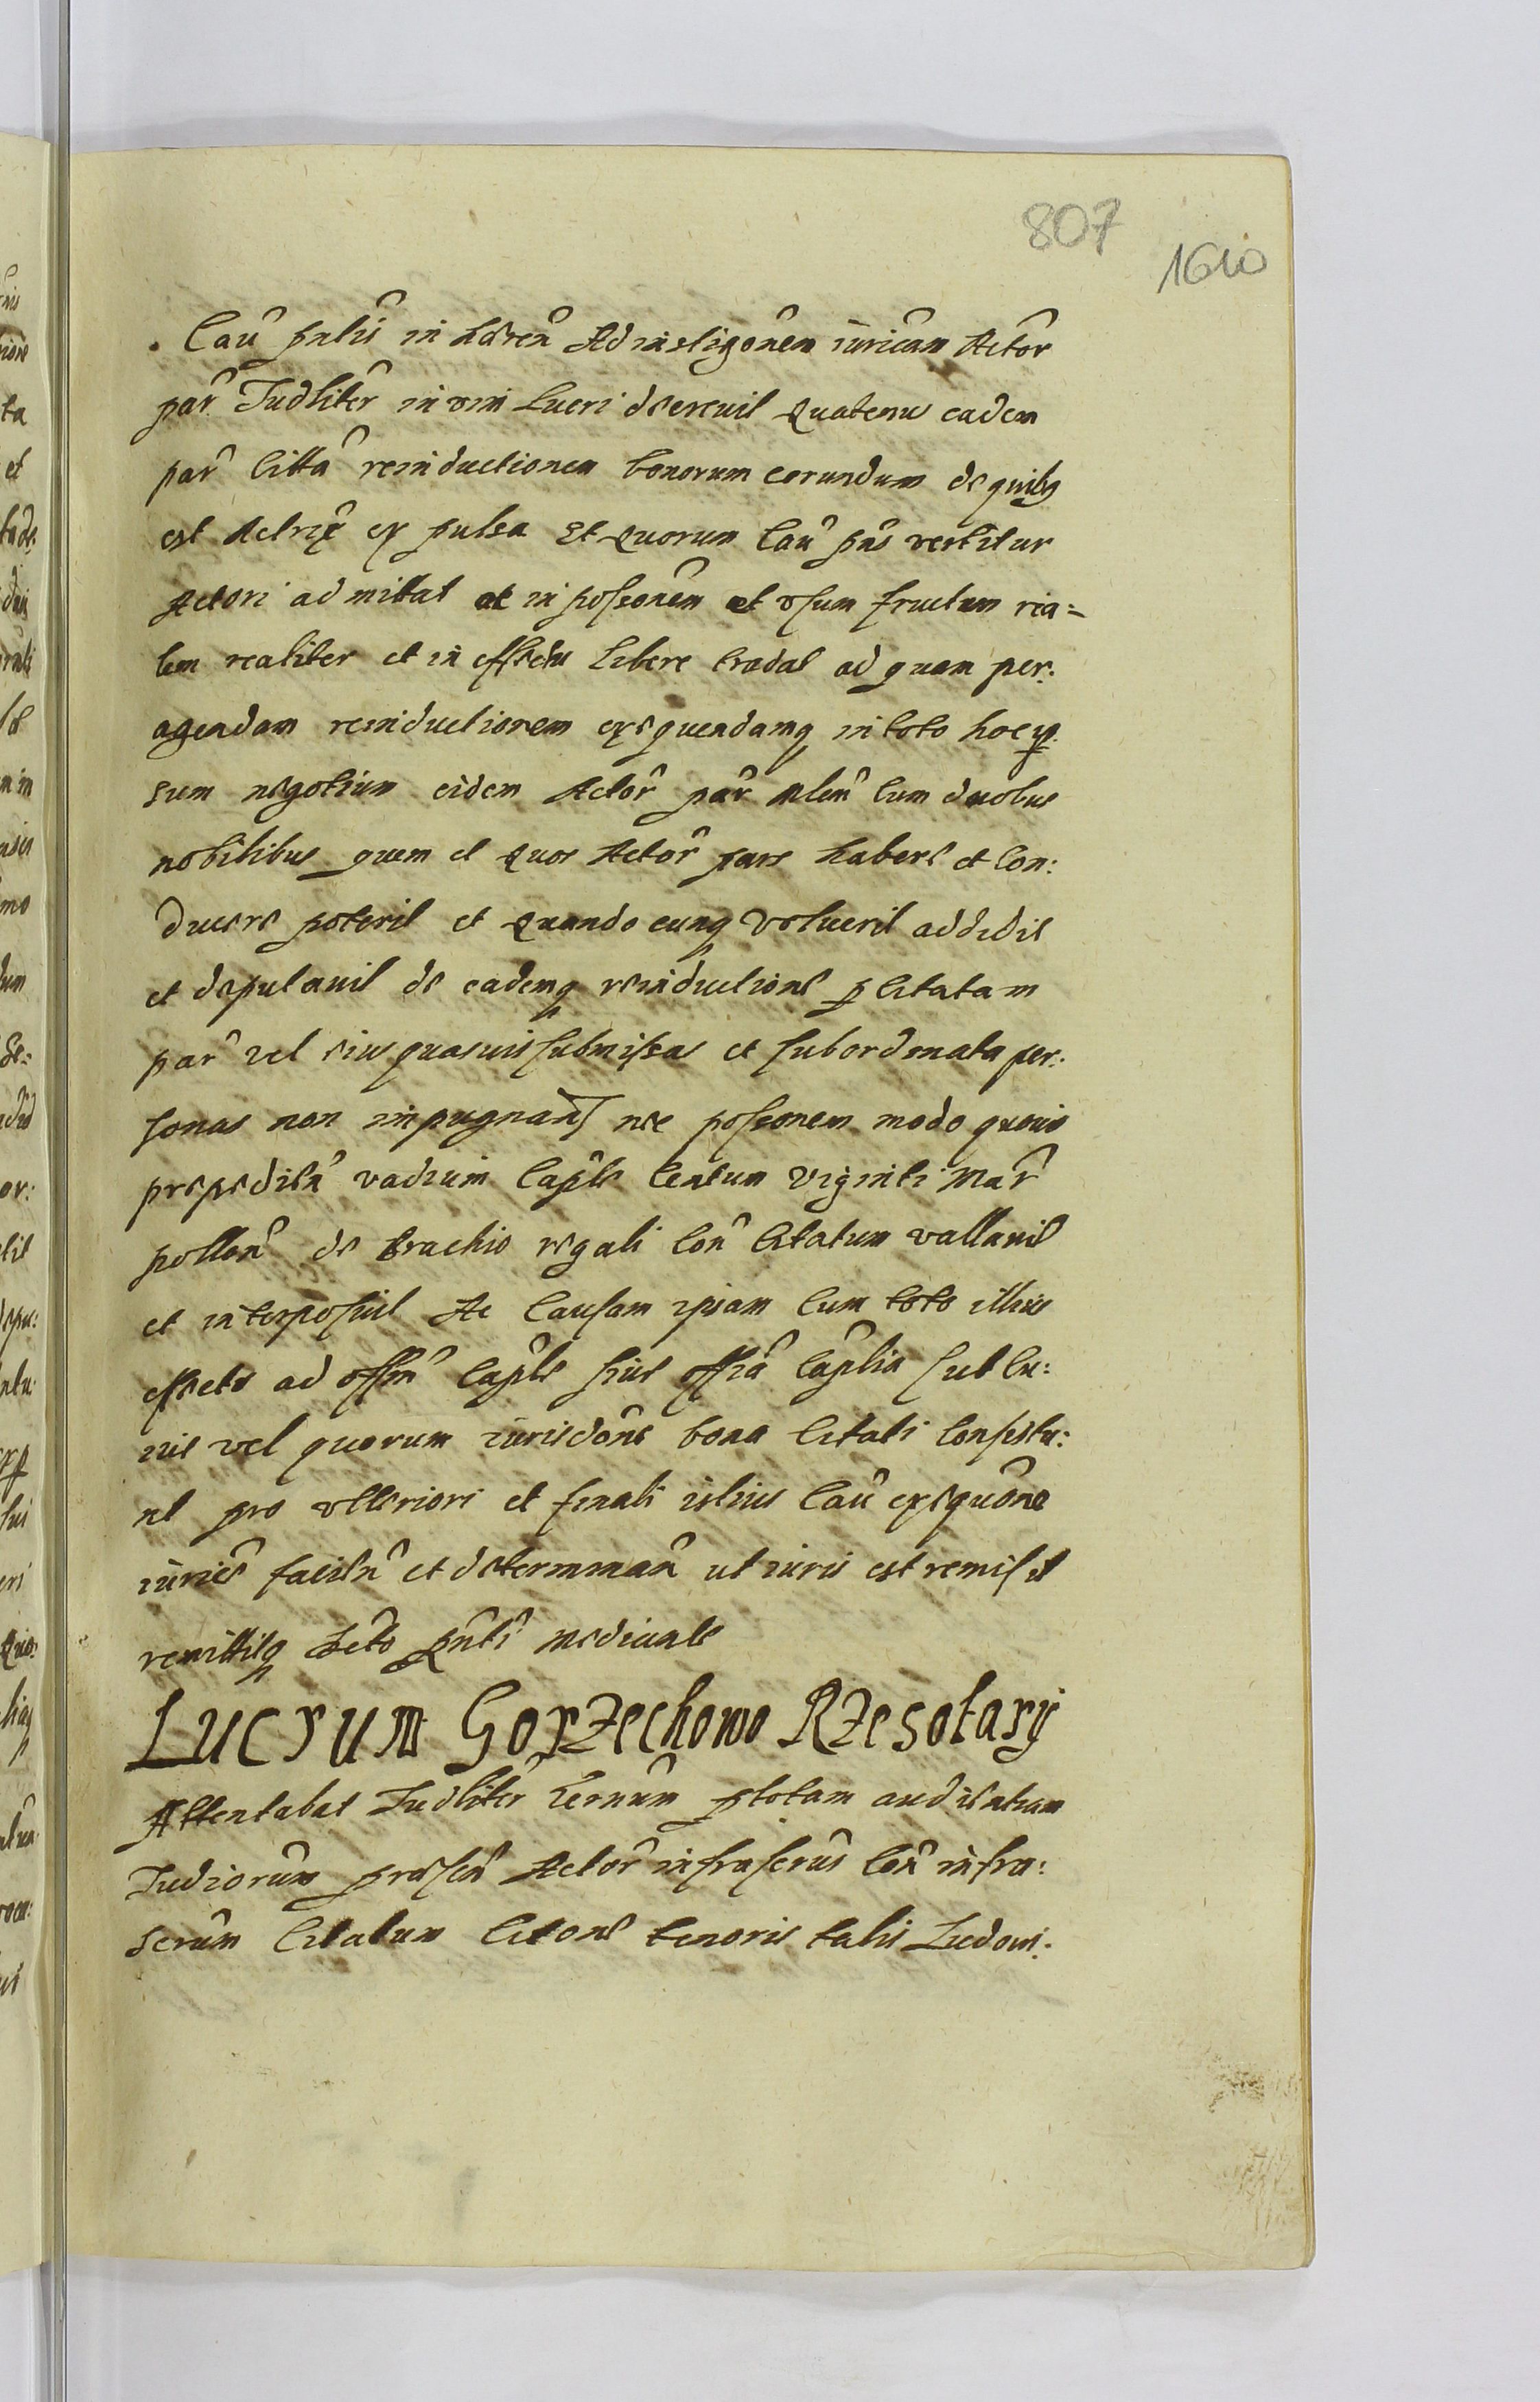 807
1610
Cau͂ pn̄tis in haeren͂ Ad instigōnem iuricam Actōr
par͂ Judliter͂ in vim Lucri decrevit Quatenus eadem
par͂ Citta͂ reinductionem bonorum eorundum de quibq
est Actrix͂ ex pulsa Et Quorum Cau͂ pn̄s vertitur
Actori admittat et in possōnem et vsum fructum rea=
lem realiter et in effectu Libere tradat ad quam per:
agendam reinductionem exequendamq in toto hoc ip:
sum negotium eidem Actōr pār mlem͂ Cum duobus
nobilibus quem et Quos Actōr pars habere et Con:
ducere poterit et Quandocunq Voluerit addidit
et deputavit de eademq reinductione p Citatam
par͂ vel eius quasvis submissas et subordinata per:
sonas non impugnan͂ nec possōnem modo quovis
prepedien͂ vadium Capl͂e Centum Viginti Mar͂
pollon͂ de brachio regali Con͂ Citatum vallavit
et interposuit Ac Causam ipsam Cum toto illius
effectu ad offm͂ Capl͂e sive offia͂ Capl͂ia sub Cu:
ius vel quorum iurisdōne bona Citati Consistu:
nt pro vlteriori et finali istius Cau͂ exequōne
iurice͂ facien͂ et determinan͂ ut iuris est remisit
remittitq Dcto pn̄ti mediante
Lucrum Gorzechowo Rzesotary
Attentabat Judliter͂ termūm p totam audientiam
Judiorūm praesen͂ Actōr infrascrus͂ Con͂ infra:
scrūm Citatum Citōne tenoris talis Ludovi: